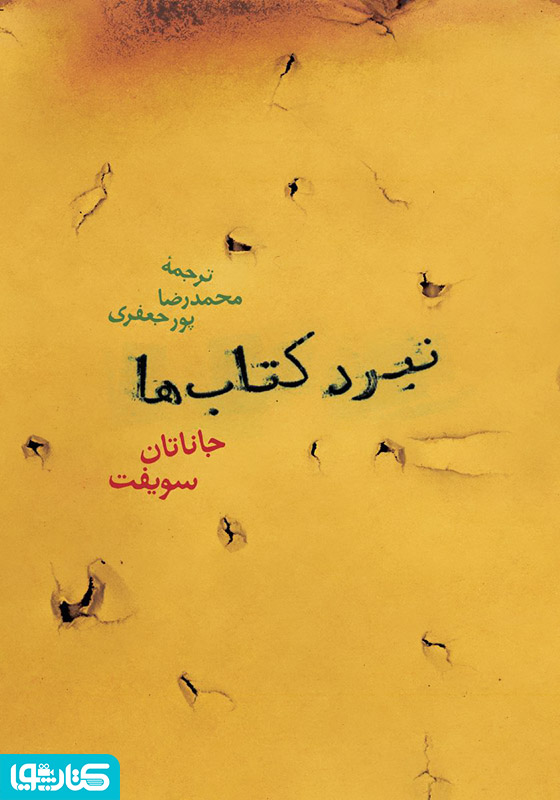 ترجمهٔ
محمدرضا
پورجعفری
نبرد کتاب‌ها
جاناتان
سویفت
کتابشویا